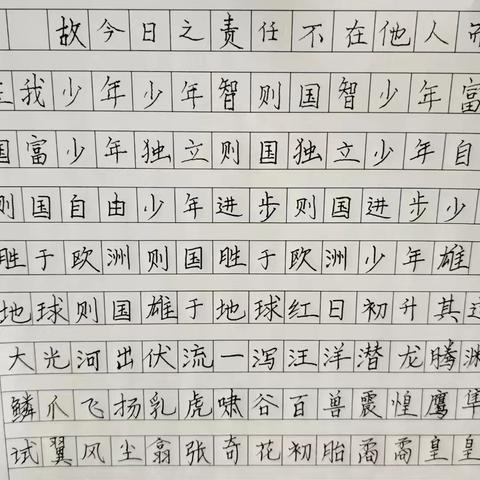 故今日之责任不在他人而
在我少年少年智则国智少年富
国富少年独立则国独立少年自
则国自由少年进步则国进步少
胜于欧洲则国胜于欧洲少年雄
地球则国雄于地球红日初升其道
大光河出伏流一泻汪洋潜龙腾渊
鳞爪飞扬乳虎啸谷百兽震煌鹰隼
试翼风尘翕张奇花初胎矞矞皇皇